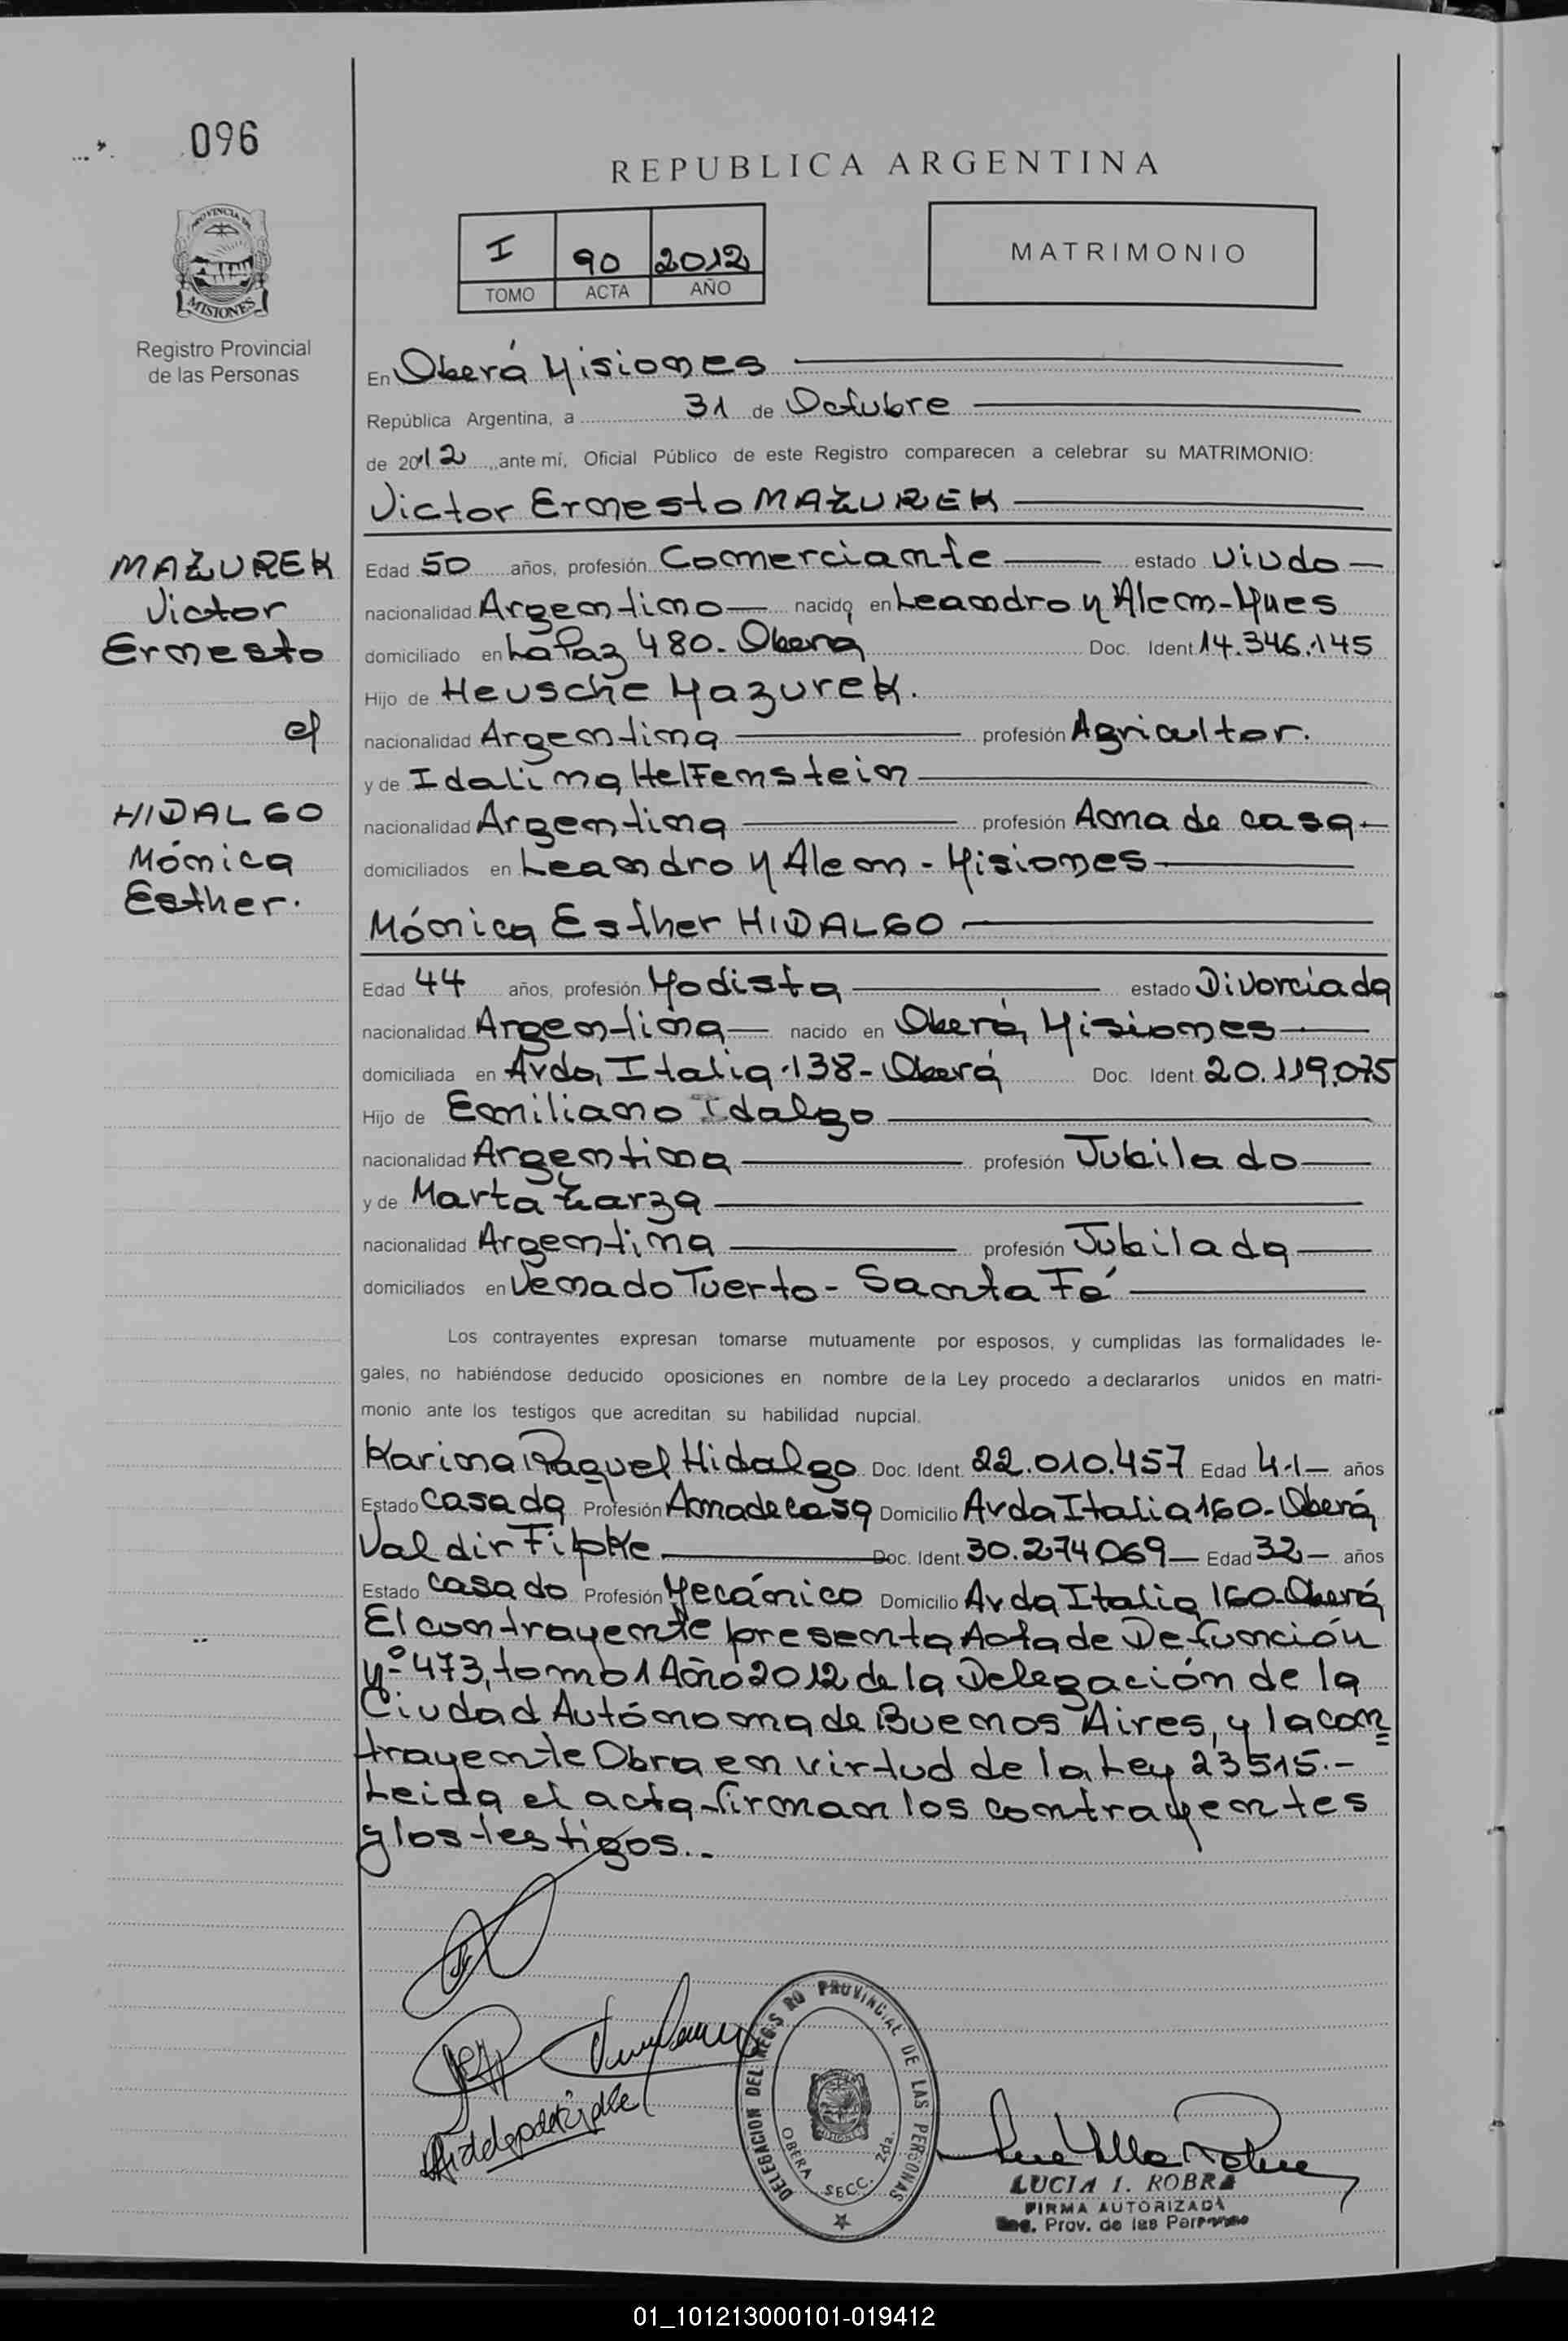 096
REPUBLICA ARGENTINA
I 90 2012
TOMO ACTA AÑO
MATRIMONIO
PROVINCIA DE
MISIONES
Registro Provincial
de las Personas
En Oberá Misiones
República Argentina, a 31 de Octubre
de 2012 ante mí, Oficial Público de este Registro comparecen a celebrar su MATRIMONIO:
Victor Ernesto MAZUREK
MAZUREK
Victor
Ernesto
c/
HIDALGO
Mónica
Esther.
Edad 50 años, profesión Comerciante estado Viudo
nacionalidad Argentino nacido en Leandro N Alem-Mnes
domiciliado en La Paz 480. Oberá Doc. Ident 14.346.145
Hijo de Heusche Mazurek.
nacionalidad Argentina profesión Agricultor.
y de Idalina Helfenstein
nacionalidad Argentina profesión Ama de casa
domiciliados en Leandro N Alem - Misiones
Mónica Esther HIDALGO
Edad 44 años, profesión Modista estado Divorciada
nacionalidad Argentina nacido en Oberá, Misiones
domiciliada en Avda, Italia 138- Oberá Doc. Ident. 20.119.075
Hijo de Emiliano Idalgo
nacionalidad Argentina profesión Jubilado
y de Marta Zarza
nacionalidad Argentina profesión Jubilada
domiciliados en Venado Tuerto - Santa Fé
Los contrayentes expresan tomarse mutuamente por esposos, y cumplidas las formalidades le-
gales, no habiéndose deducido oposiciones en nombre de la Ley procedo a declararlos unidos en matri-
monio ante los testigos que acreditan su habilidad nupcial.
Karina Raquel Hidalgo Doc. Ident. 22.010.457 Edad 41 años
Estado Casada Profesión Ama de casa Domicilio Avda Italia 160-Oberá
Valdir Fipke Doc. Ident. 30.274069 Edad 32 años
Estado Casado Profesión Mecánico Domicilio Avda Italia 160-Oberá
El contrayente presenta Acta de Defunción
Nº 473, tomo 1 Año 2012 de la Delegación de la
Ciudad Autónoma de Buenos Aires, y la con=
trayente Obra en virtud de la Ley 23515.-
Leida el acta firman los contrayentes
y los testigos.-
DELEGACION DEL REGISTRO PROVINCIAL DE LAS PERSONAS
OBERA SECC. 2da.
LUCIA I. ROBRA
FIRMA AUTORIZADA
Reg. Prov. de las Personas
01_101213000101-019412